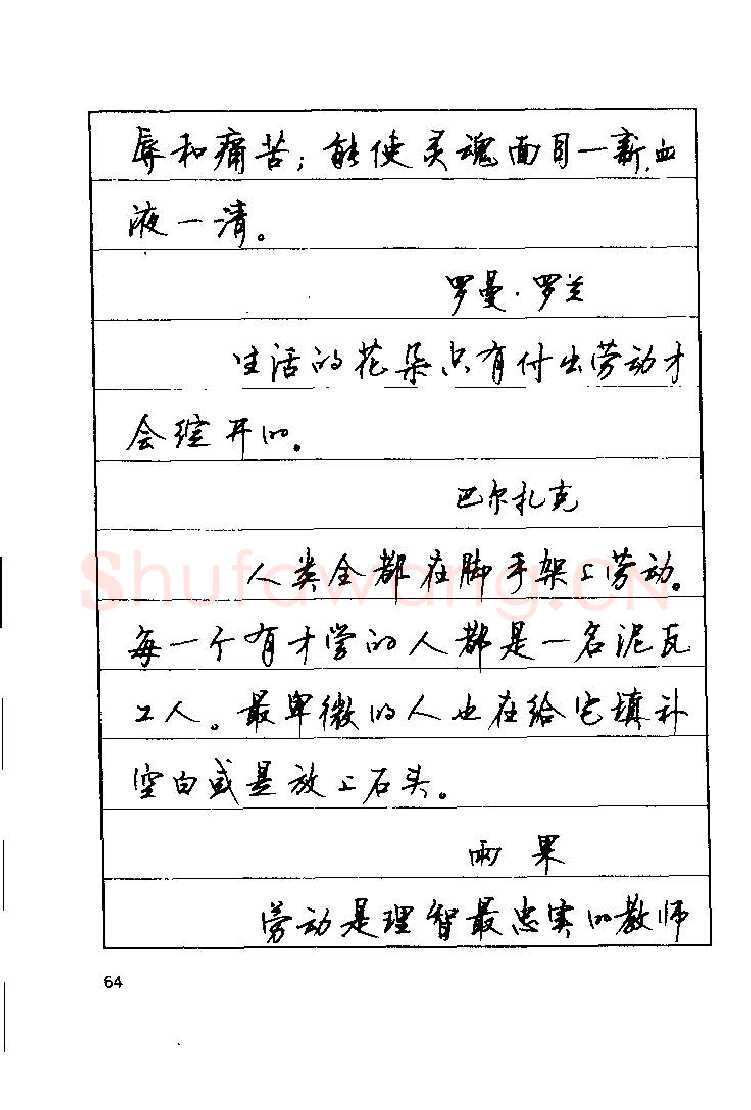 辱和痛苦;能使灵魂面目一新,血
液一清。
罗曼·罗兰
生活的花朵只有付出劳动才
会绽开的。
巴尔扎克
人类全都在脚手架上劳动。
Shufawang.CN
每一个有才学的人都是一名泥瓦
工人。最卑微的人也在给它填补
空白或是放上石头。
雨果
劳动是理智最忠实的教师
64